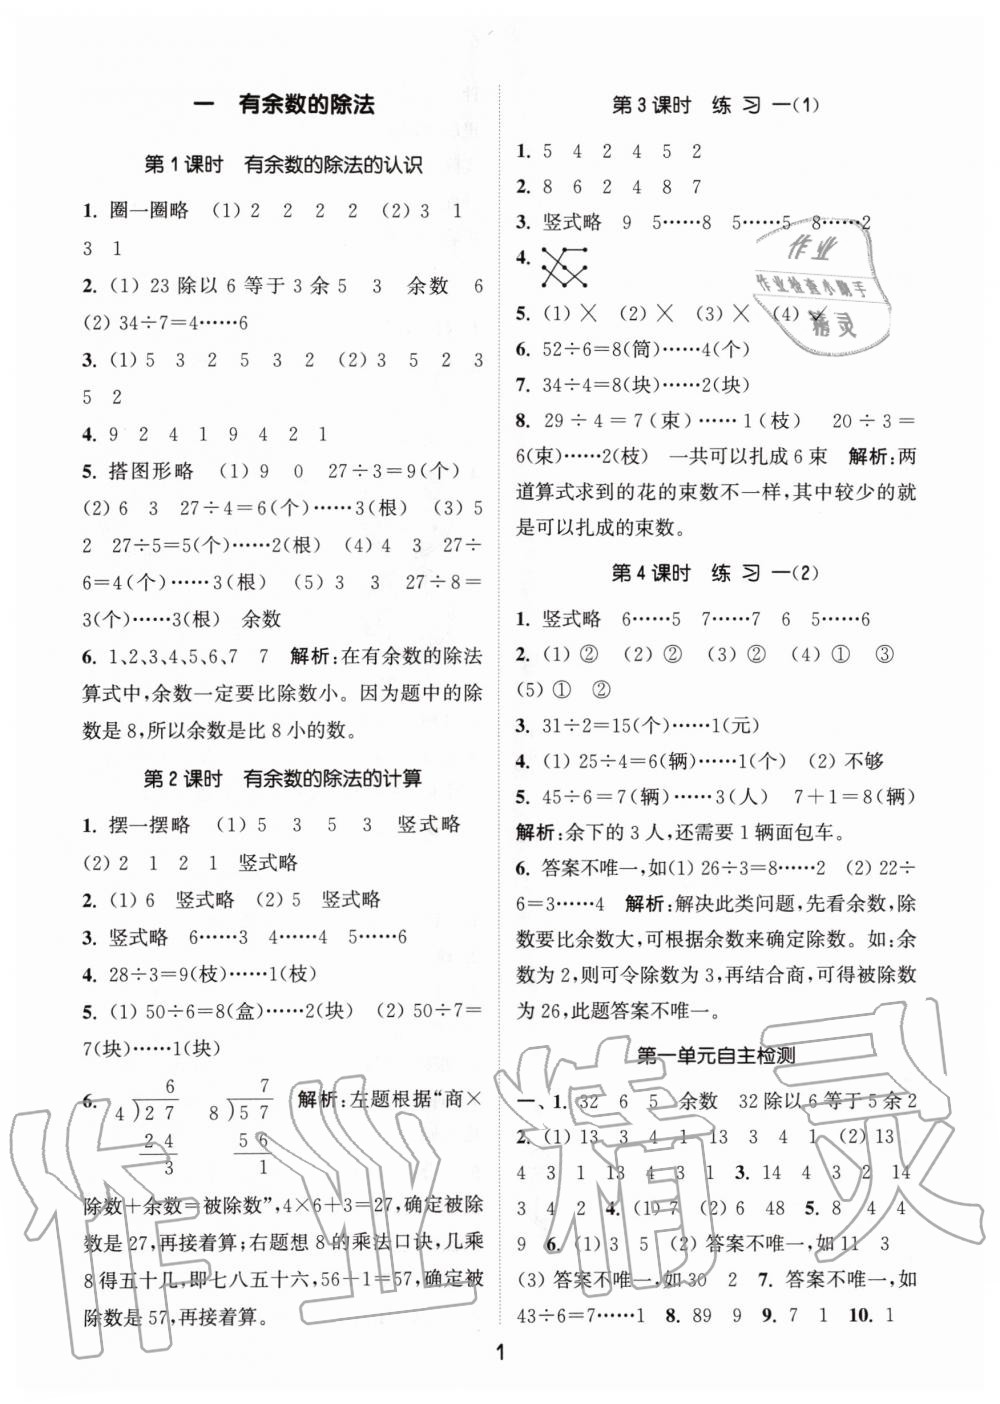 一 有余数的除法
第1课时 有余数的除法的认识
1. 圈一圈略 (1) 2 2 2 2 (2) 3 1
3 1
2. (1) 23 除以 6 等于 3 余 5 3 余数 6
(2) 34÷7=4……6
3. (1) 5 3 2 5 3 2 (2) 3 5 2 3
5 2
4. 9 2 4 1 9 4 2 1
5. 搭图形略 (1) 9 0 27÷3=9(个)
(2) 6 3 27÷4=6(个)……3(根) (3) 5
2 27÷5=5(个)……2(根) (4) 4 3 27÷
6=4(个)……3(根) (5) 3 3 27÷8=
3(个)……3(根) 余数
6. 1、2、3、4、5、6、7 7 解析:在有余数的除法
算式中,余数一定要比除数小。因为题中的除
数是 8,所以余数是比 8 小的数。
第2课时 有余数的除法的计算
1. 摆一摆略 (1) 5 3 5 3 竖式略
(2) 2 1 2 1 竖式略
2. (1) 6 竖式略 (2) 5 竖式略
3. 竖式略 6……3 4……4 5……6
4. 28÷3=9(枝)……1(枝)
5. (1) 50÷6=8(盒)……2(块) (2) 50÷7=
7(块)……1(块)
6. 6 7 解析:左题根据“商×
4)27 8)57
24 56
3 1
除数+余数=被除数”,4×6+3=27,确定被除
数是 27,再接着算;右题想 8 的乘法口诀,几乘
8 得五十几,即七八五十六,56+1=57,确定被
除数是 57,再接着算。
第3课时 练 习 一(1)
1. 5 4 2 4 5 2
2. 8 6 2 4 8 7
3. 竖式略 9 5……8 5……5 8……2
4.
5. (1) × (2) × (3) × (4) ✓
6. 52÷6=8(筒)……4(个)
7. 34÷4=8(块)……2(块)
8. 29÷4=7(束)……1(枝) 20÷3=
6(束)……2(枝) 一共可以扎成 6 束 解析:两
道算式求到的花的束数不一样,其中较少的就
是可以扎成的束数。
第4课时 练 习 一(2)
1. 竖式略 6……5 7……7 6 5……6
2. (1) ② (2) ② (3) ② (4) ① ③
(5) ① ②
3. 31÷2=15(个)……1(元)
4. (1) 25÷4=6(辆)……1(个) (2) 不够
5. 45÷6=7(辆)……3(人) 7+1=8(辆)
解析:余下的 3 人,还需要 1 辆面包车。
6. 答案不唯一,如(1) 26÷3=8……2 (2) 22÷
6=3……4 解析:解决此类问题,先看余数,除
数要比余数大,可根据余数来确定除数。如:余
数为 2,则可令除数为 3,再结合商,可得被除数
为 26,此题答案不唯一。
第一单元自主检测
一、1. 32 6 5 余数 32 除以 6 等于 5 余 2
2. (1) 13 3 4 1 13 3 4 1 (2) 13
4 3 1 13 4 3 1 3. 14 4 3 2 14
3 4 2 4. (1) 7 (2) 6 48 5. 8 4 4
9 6. (1) 3 5 (2) 答案不唯一,如 11 3
(3) 答案不唯一,如 30 2 7. 答案不唯一,如
43÷6=7……1 8. 89 9 9. 7 1 10. 1
1
作业
作业检查小助手
精灵
作业精灵